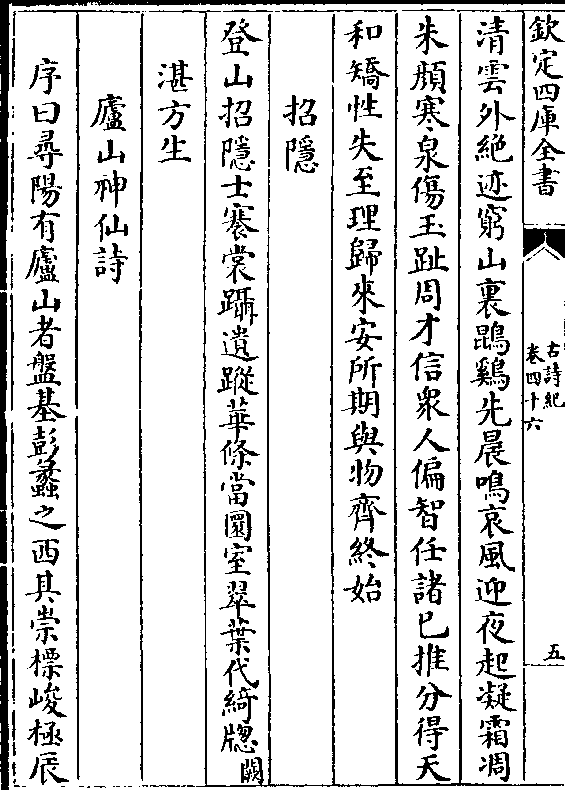 欽定四庫全書
古詩紀
卷四十六
五
清雲外絶迹窮山裏鵾鷄先晨鳴哀風迎夜起凝霜凋
朱顔寒泉傷玉趾周才信衆人偏智任諸已推分得天
和矯性失至理歸來安所期與物齊終始
招隱
登山招隱士褰裳躡遺蹤華條當圜室翠葉代綺牎闕
湛方生
廬山神仙詩
序曰尋陽有廬山者盤基彭蠡之西其崇標峻極辰